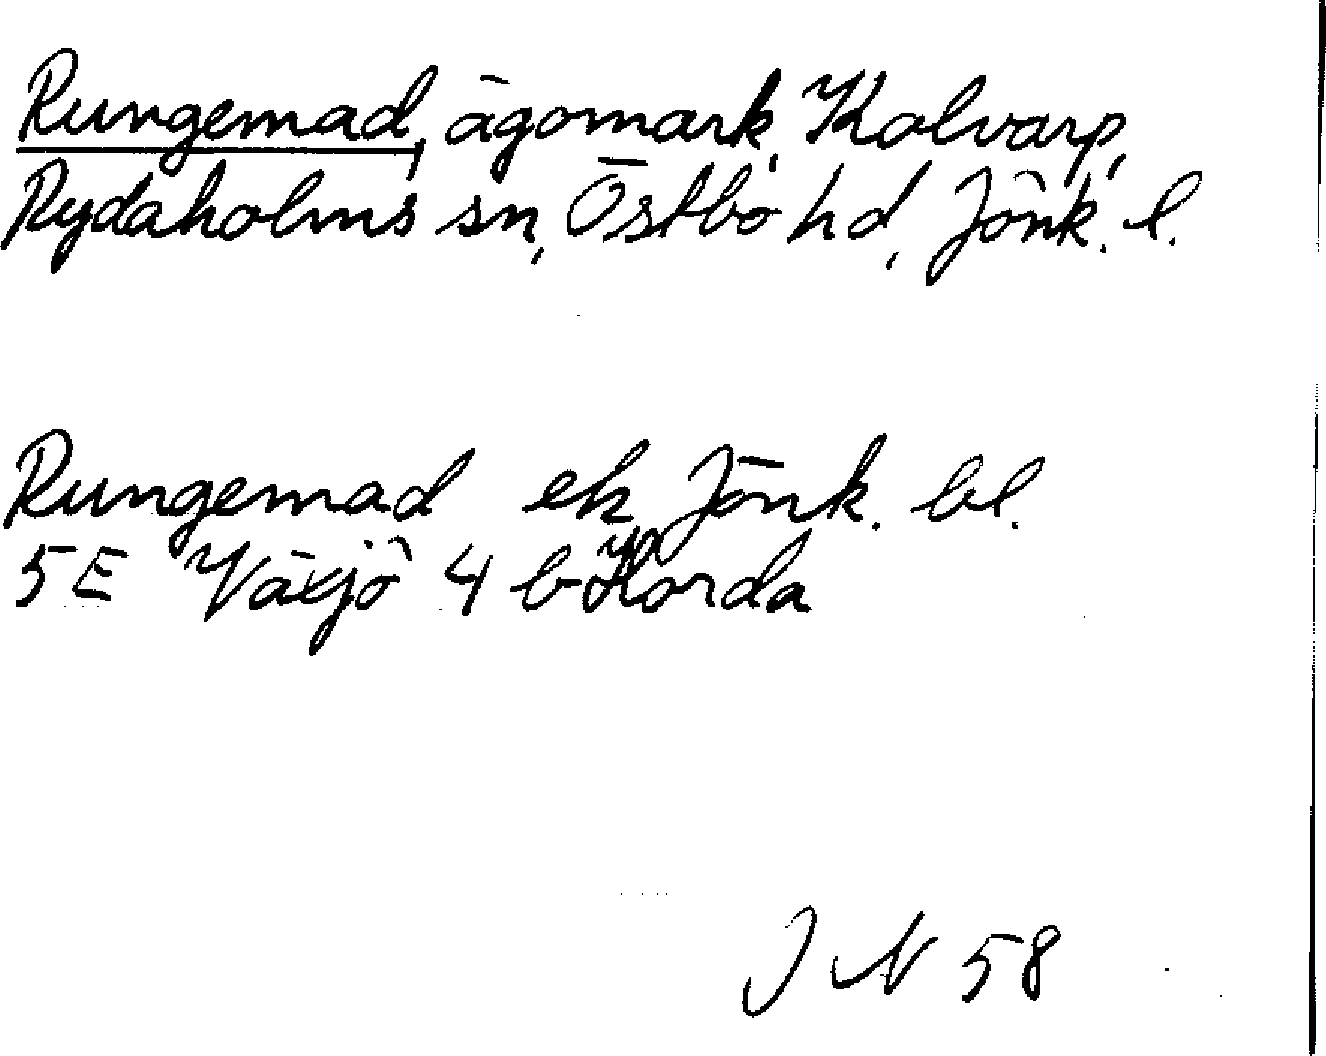 Rungemad, ägomark, Kolvarp,
Rydaholms sn, Östbo hd, Jönk. l.
Rungemad ek Jönk. bl.
5E Växjö 4 b Horda
J N 58